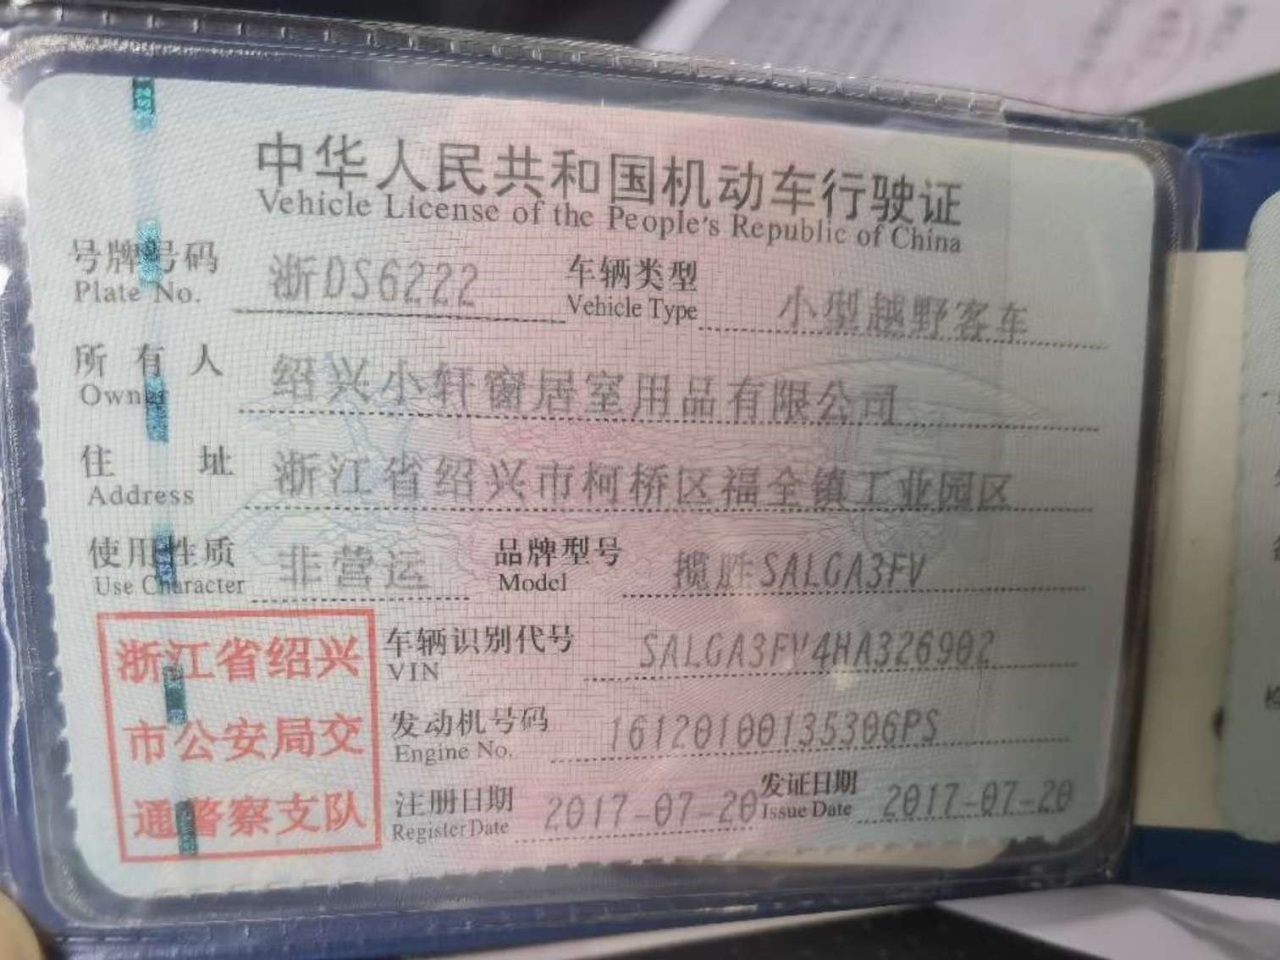 中华人民共和国机动车行驶证
Vehicle License of the People's Republic of China
号牌号码 浙DS6222 车辆类型 小型越野客车
Plate No. Vehicle Type
所有人 绍兴小轩窗居室用品有限公司
Owner
住址 浙江省绍兴市柯桥区福全镇工业园区
Address
使用性质 非营运 品牌型号 揽胜SALGA3FV
Use Character Model
浙江省绍兴
市公安局交
通警察支队
车辆识别代号 SALGA3FV4HA326902
VIN
发动机号码 16120100135306PS
Engine No.
注册日期 2017-07-20 发证日期 2017-07-20
Register Date Issue Date